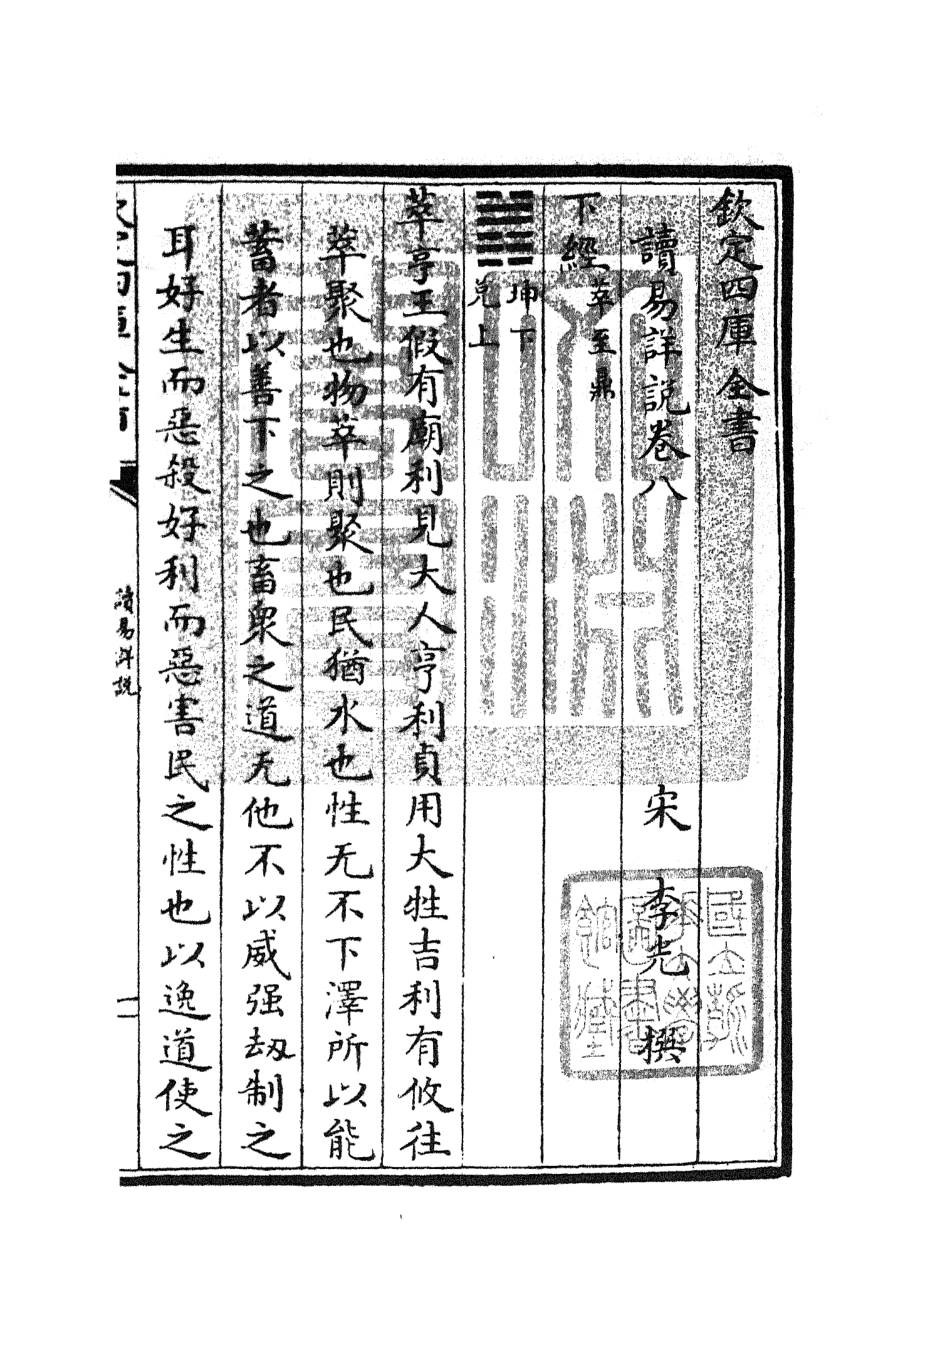 欽定四庫全書
讀易詳說卷八
宋 李光 撰
下經 萃至鼎
坤下
兌上
萃亨王假有廟利見大人亨利貞用大牲吉利有攸往
萃聚也物萃則聚也民猶水也性无不下澤所以能
蓄者以善下之也畜衆之道无他不以威强刼制之
耳好生而惡殺好利而惡害民之性也以逸道使之
欽定四庫全書
讀易詳說
一